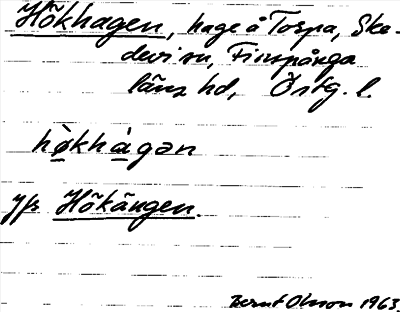 Hökhagen, hage å Torpa, Ske-
devi sn, Finspånga
läns hd, Östg. l.
hø̀khàgən
jfr Hökängen.
Bernt Olsson 1963.